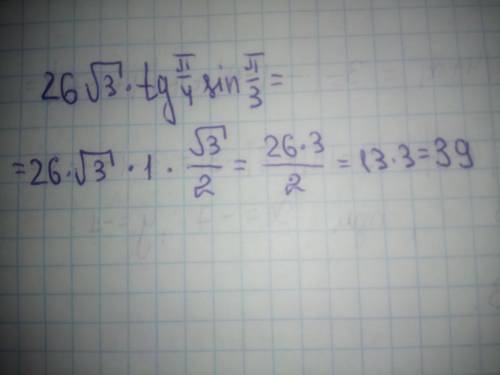 26√3 · tg π/4 sin π/3 =
= 26 · √3 · 1 · √3/2 = 26·3/2 = 13 · 3 = 39